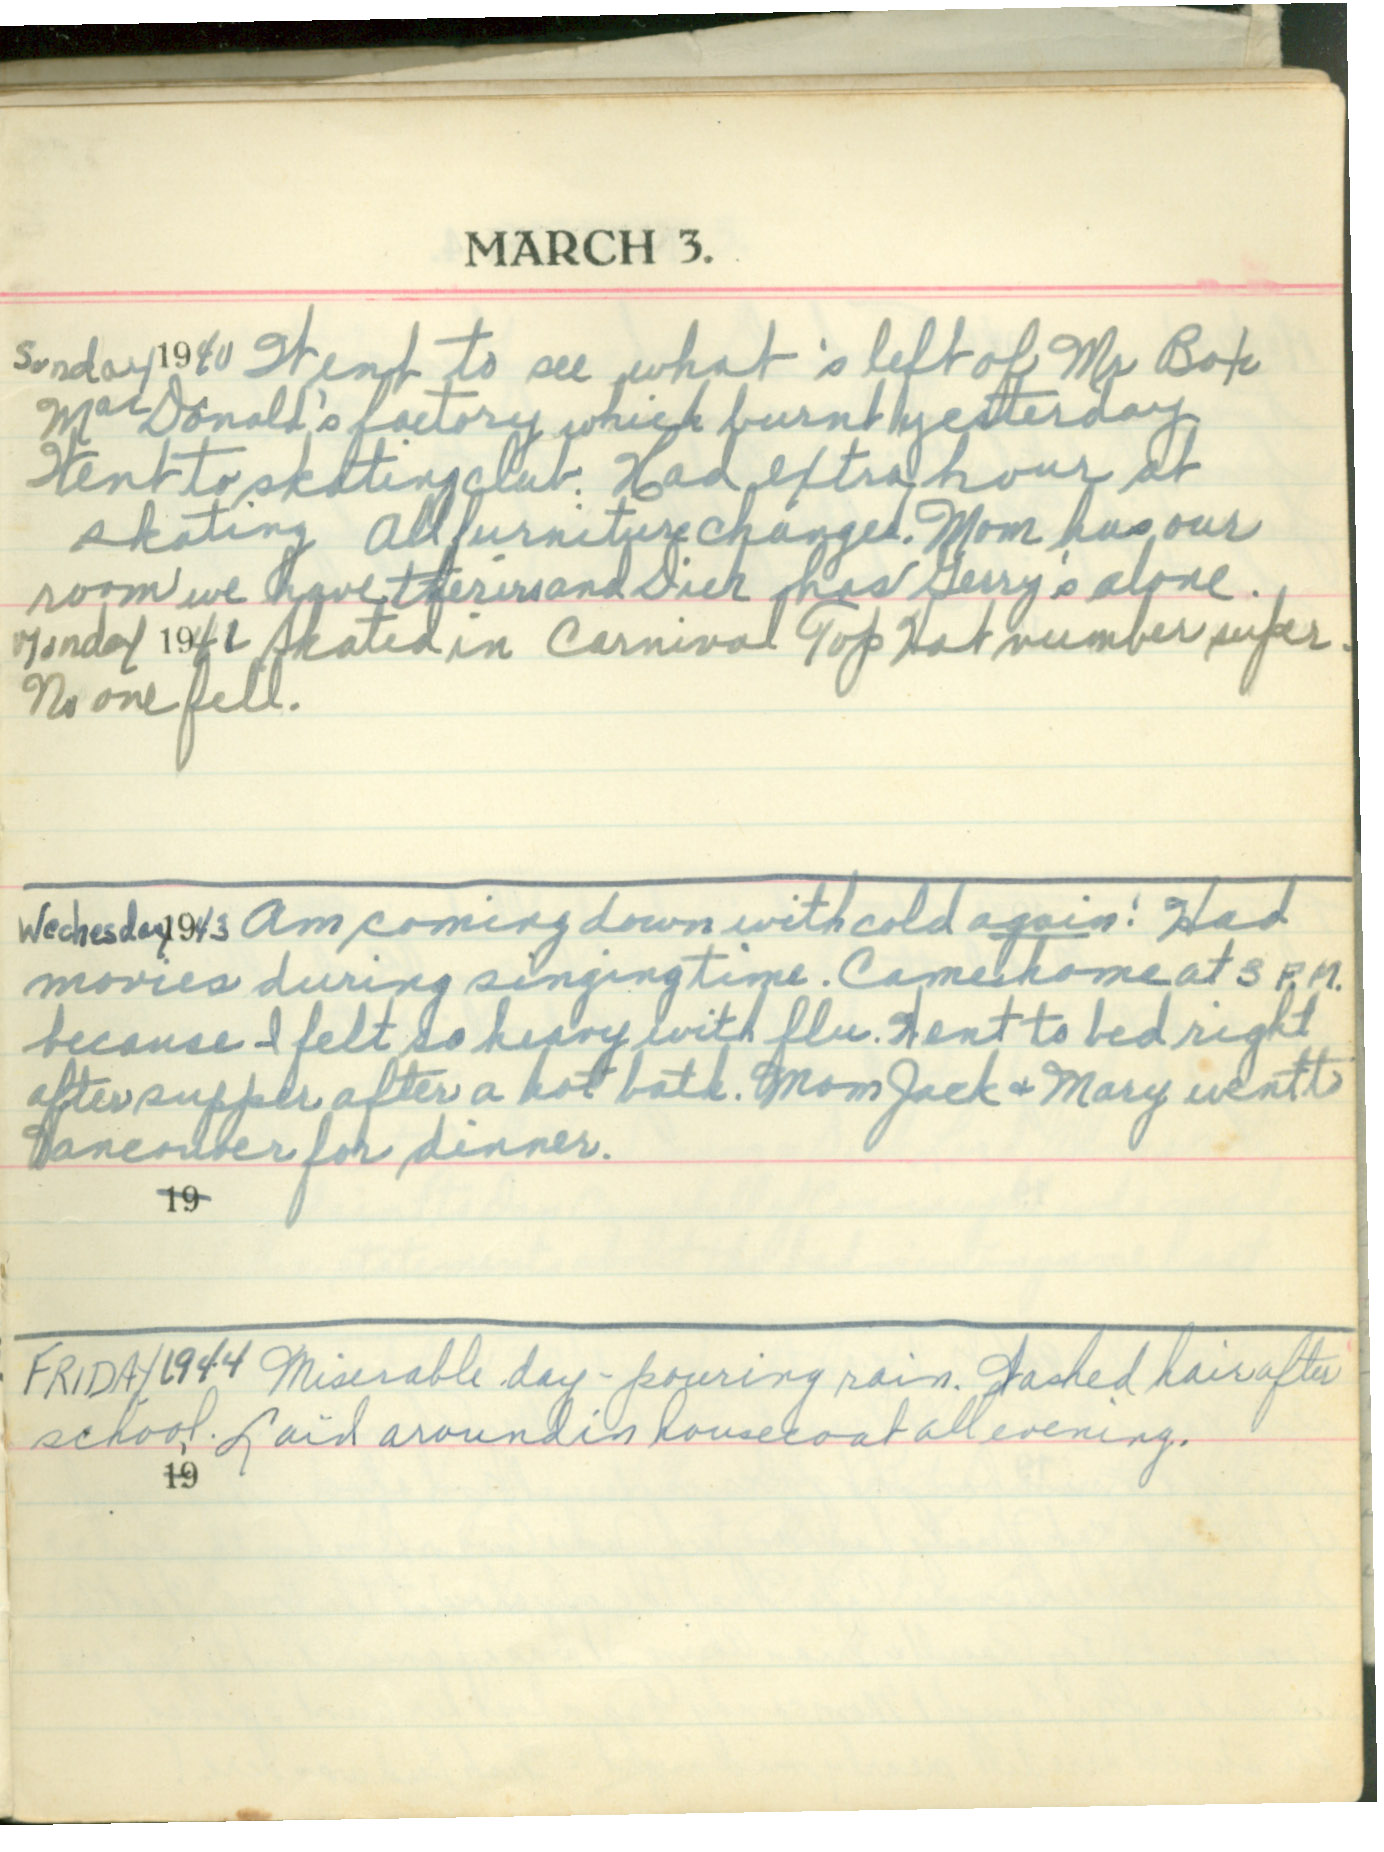 MARCH 3.
Sunday 1940 Went to see what 's left of Mr Bob
MacDonald's factory which burnt yesterday
Went to skating club. Had extra hour at
skating All furniture changed. Mom has our
room we have theirs and Dick has Gerry's alone.
Monday 1941 Skated in Carnival Top Hat number super.
No one fell.
Wednesday 1943 Am coming down with cold again! Had
movies during singing time. Came home at 3 P.M.
because I felt so heavy with flu. Went to bed right
after supper after a hot bath. Mom Jack & Mary went to
Vancouver for dinner.
19
FRIDAY 1944 Miserable day - pouring rain. Washed hair after
school. Laid around in housecoat all evening.
19